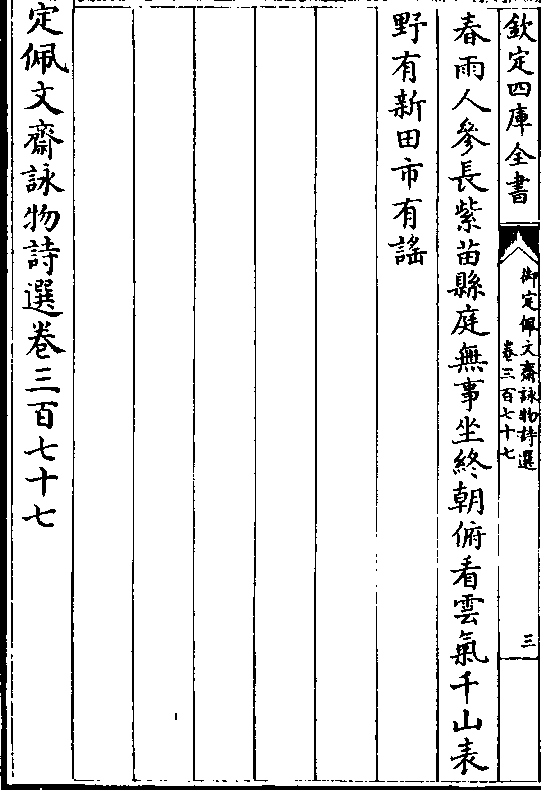 欽定四庫全書
御定佩文齋詠物詩選
卷三百七十七
三
春雨人參長紫苗縣庭無事坐終朝俯看雲氣千山表
野有新田市有謠
定佩文齋詠物詩選卷三百七十七